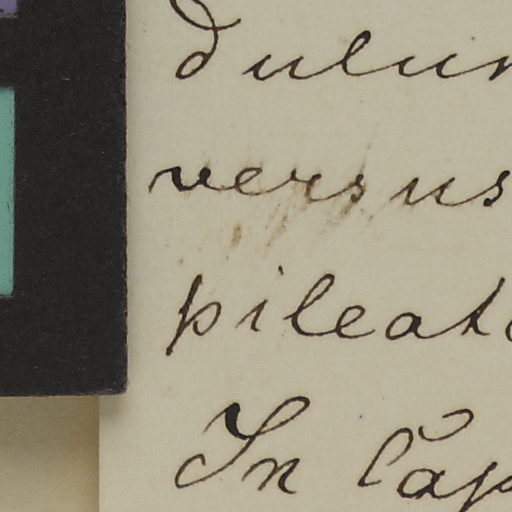 dulun
versus
pileat
In Cap